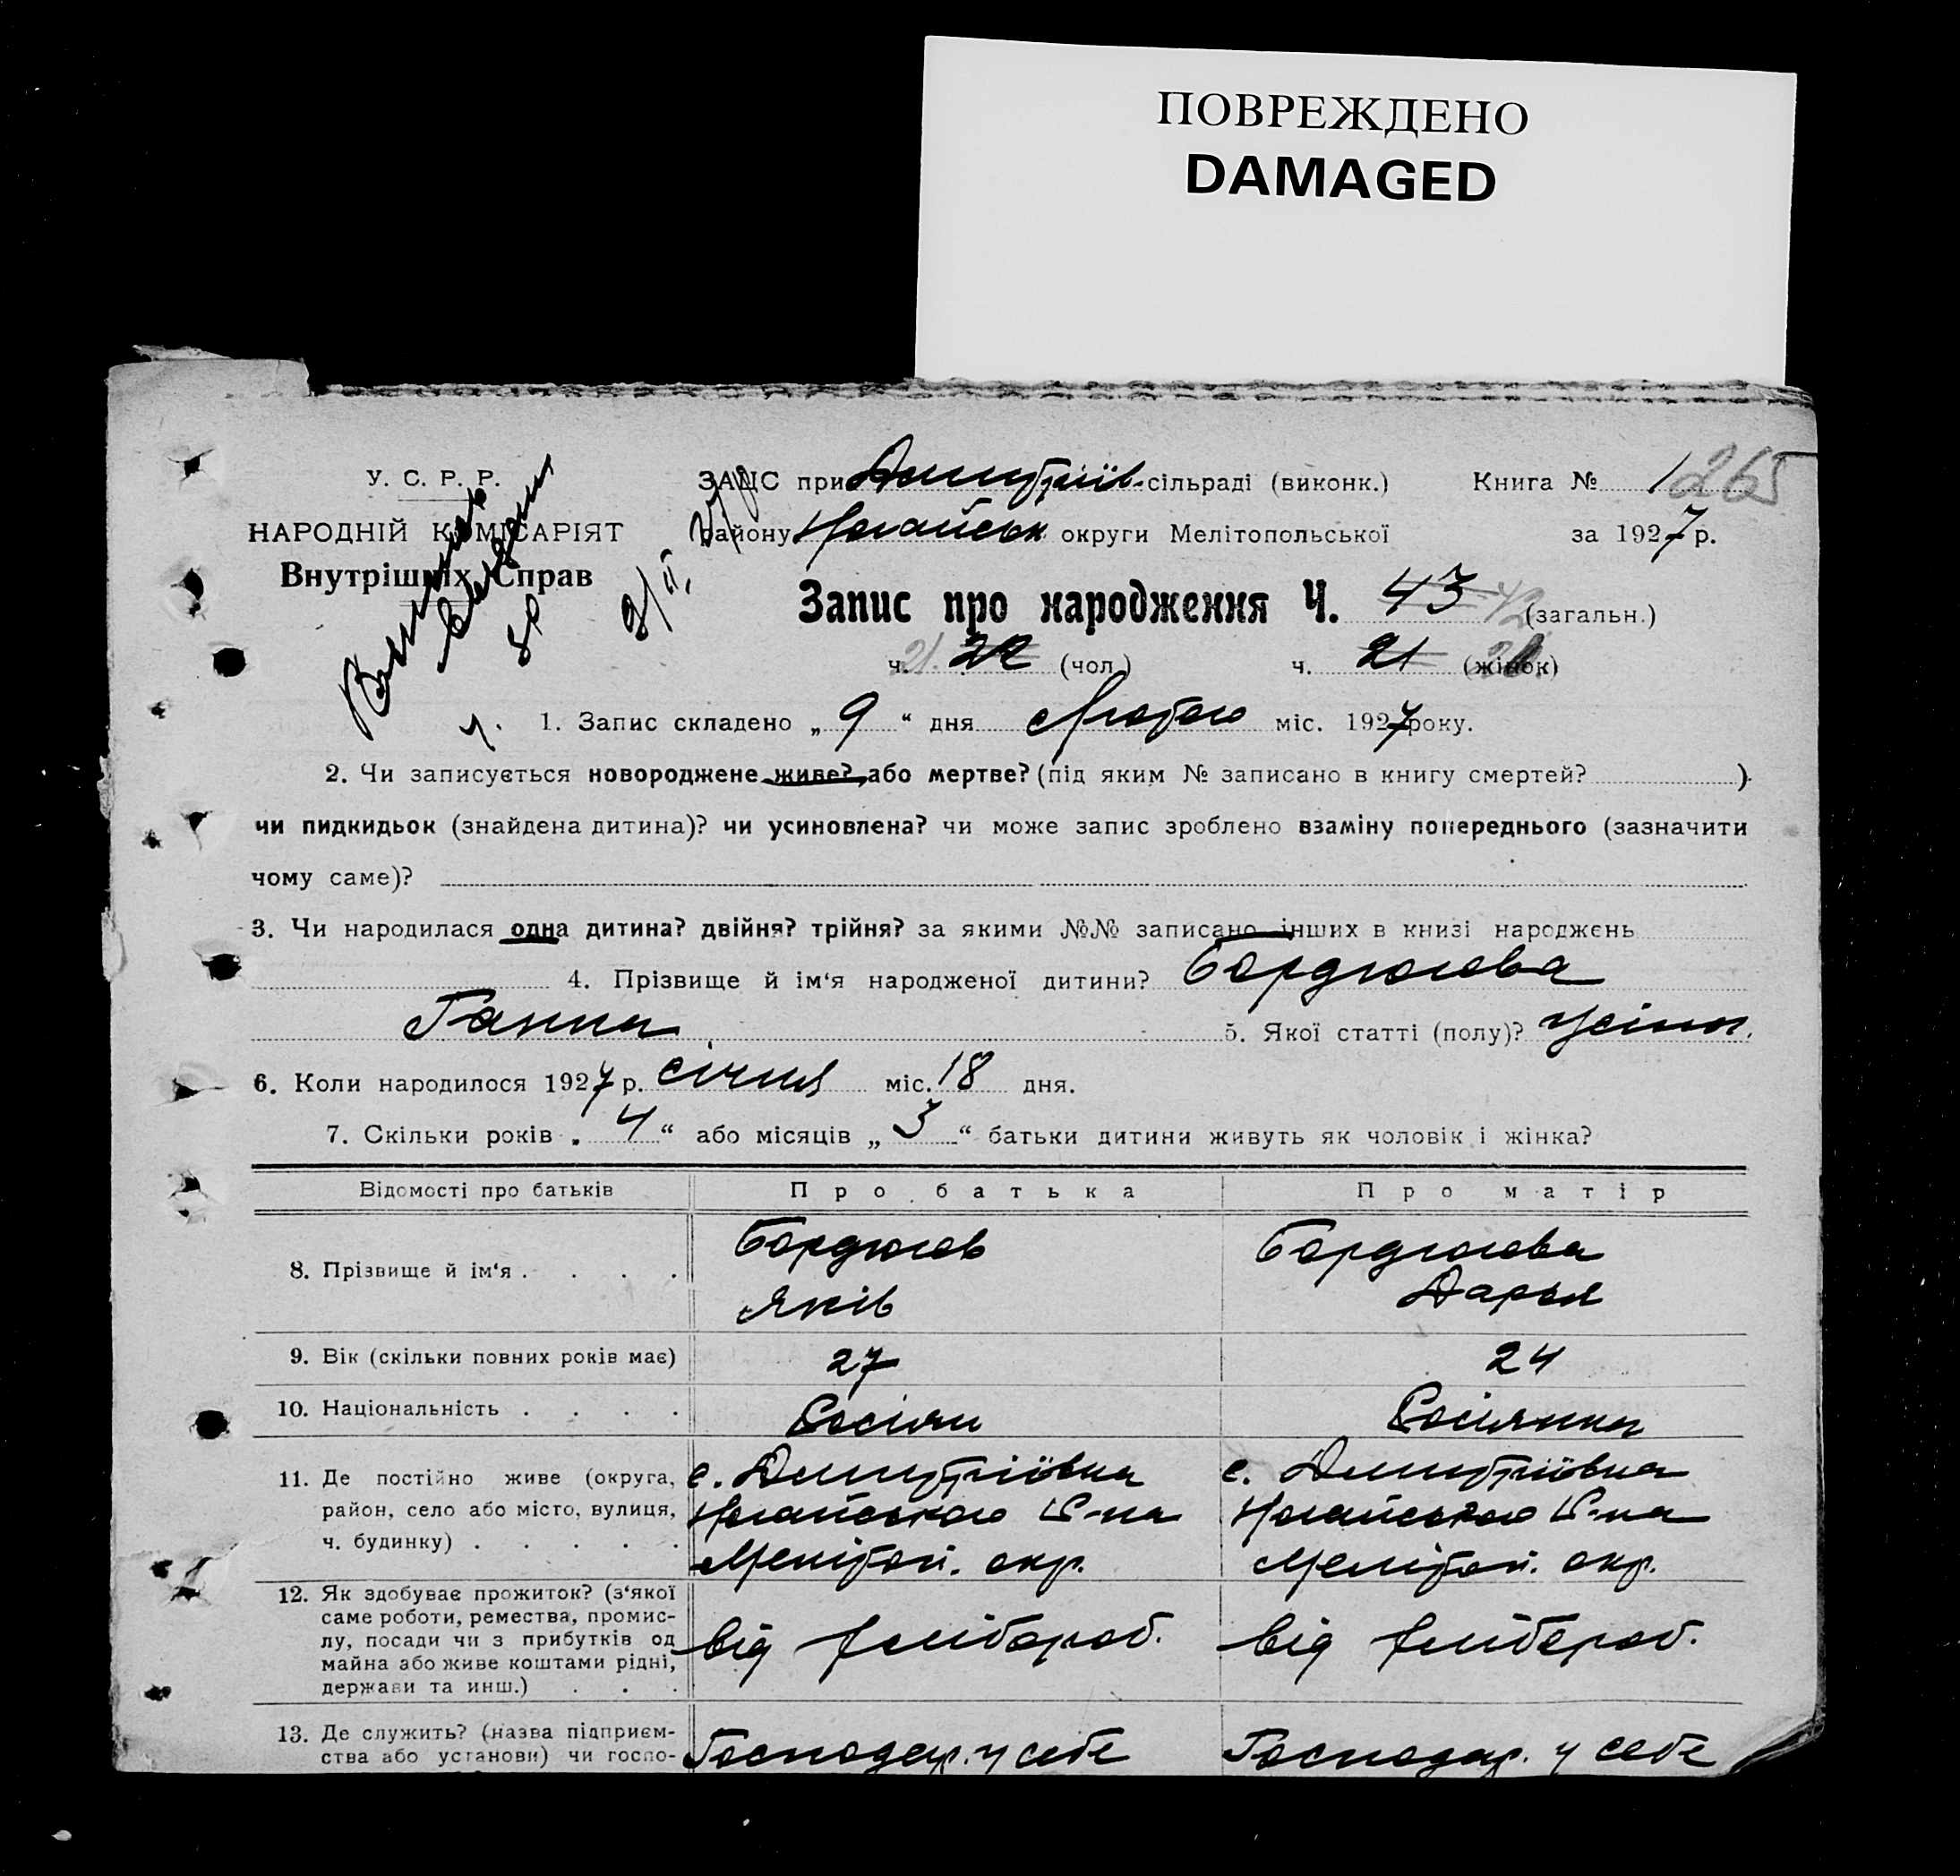 ПОВРЕЖДЕНО
DAMAGED
У. С. Р. Р.
НАРОДНІЙ КОМІСАРІЯТ
Внутрішніх Справ
ЗАЦС при Дмитріїв. сільраді (виконк.) Книга № 1 265
району Ногайськ округи Мелітопольської за 1927 р.
Запис про народження Ч. 43 42 (загальн.)
ч. 21 22 (чол.) ч. 21 (жінок)
1. Запис складено „ 9 “ дня Лютого міс. 1927 року.
2. Чи записується новороджене живе? або мертве? (під яким № записано в книгу смертей? )
чи пидкидьок (знайдена дитина)? чи усиновлена? чи може запис зроблено взаміну попереднього (зазначити
чому саме)?
3. Чи народилася одна дитина? двійня? трійня? за якими №№ записано інших в книзі народжень
4. Прізвище й ім‘я народженої дитини? Бордюгова
Ганна 5. Якої статті (полу)? жіноч.
6. Коли народилося 1927 р. січня міс. 18 дня.
7. Скільки років „ 4 “ або місяців „ 3 “ батьки дитини живуть як чоловік і жінка?
Відомості про батьків Про батька Про матір
8. Прізвище й ім‘я . . . . Бордюгов Бордюгова
Яків Дарья
9. Вік (скільки повних років має) 27 24
10. Національність . . . . Росіян Росіянка
11. Де постійно живе (округа, с. Дмитріївка с. Дмитріївка
район, село або місто, вулиця, Ногайського Р-на Ногайського Р-на
ч. будинку) . . . . . Мелітоп. окр. Мелітоп. окр.
12. Як здобуває прожиток? (з‘якої
саме роботи, ремества, промис-
лу, посади чи з прибутків од від хлібороб. від хлібороб.
майна або живе коштами рідні,
держави та инш.) . . .
13. Де служить? (назва підприєм-
ства або установи) чи госпо- Господар. у себе Господар. у себе